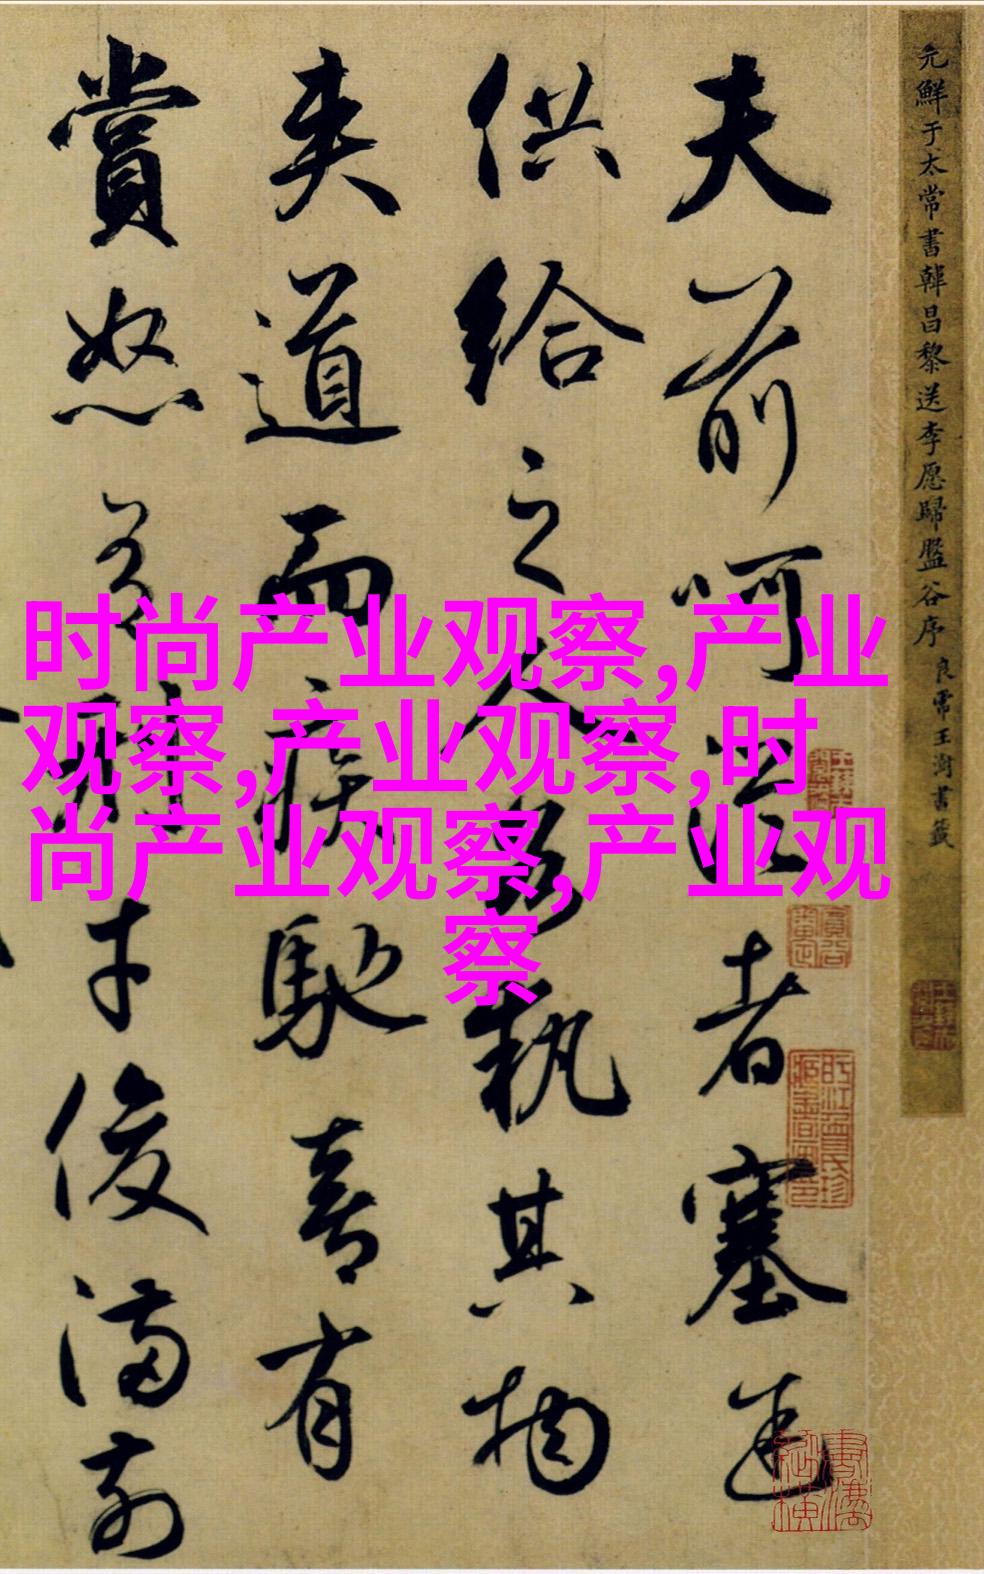 元鮮于太常書韓昌黎送李愿歸盤谷序 良常王澍書籤
夫前呵從者塞途
供給之人各執其物
夾道而疾馳喜有
賞怒有刑才俊滿前
时尚产业观察,产业
观察,产业观察,时
尚产业观察,产业观
察